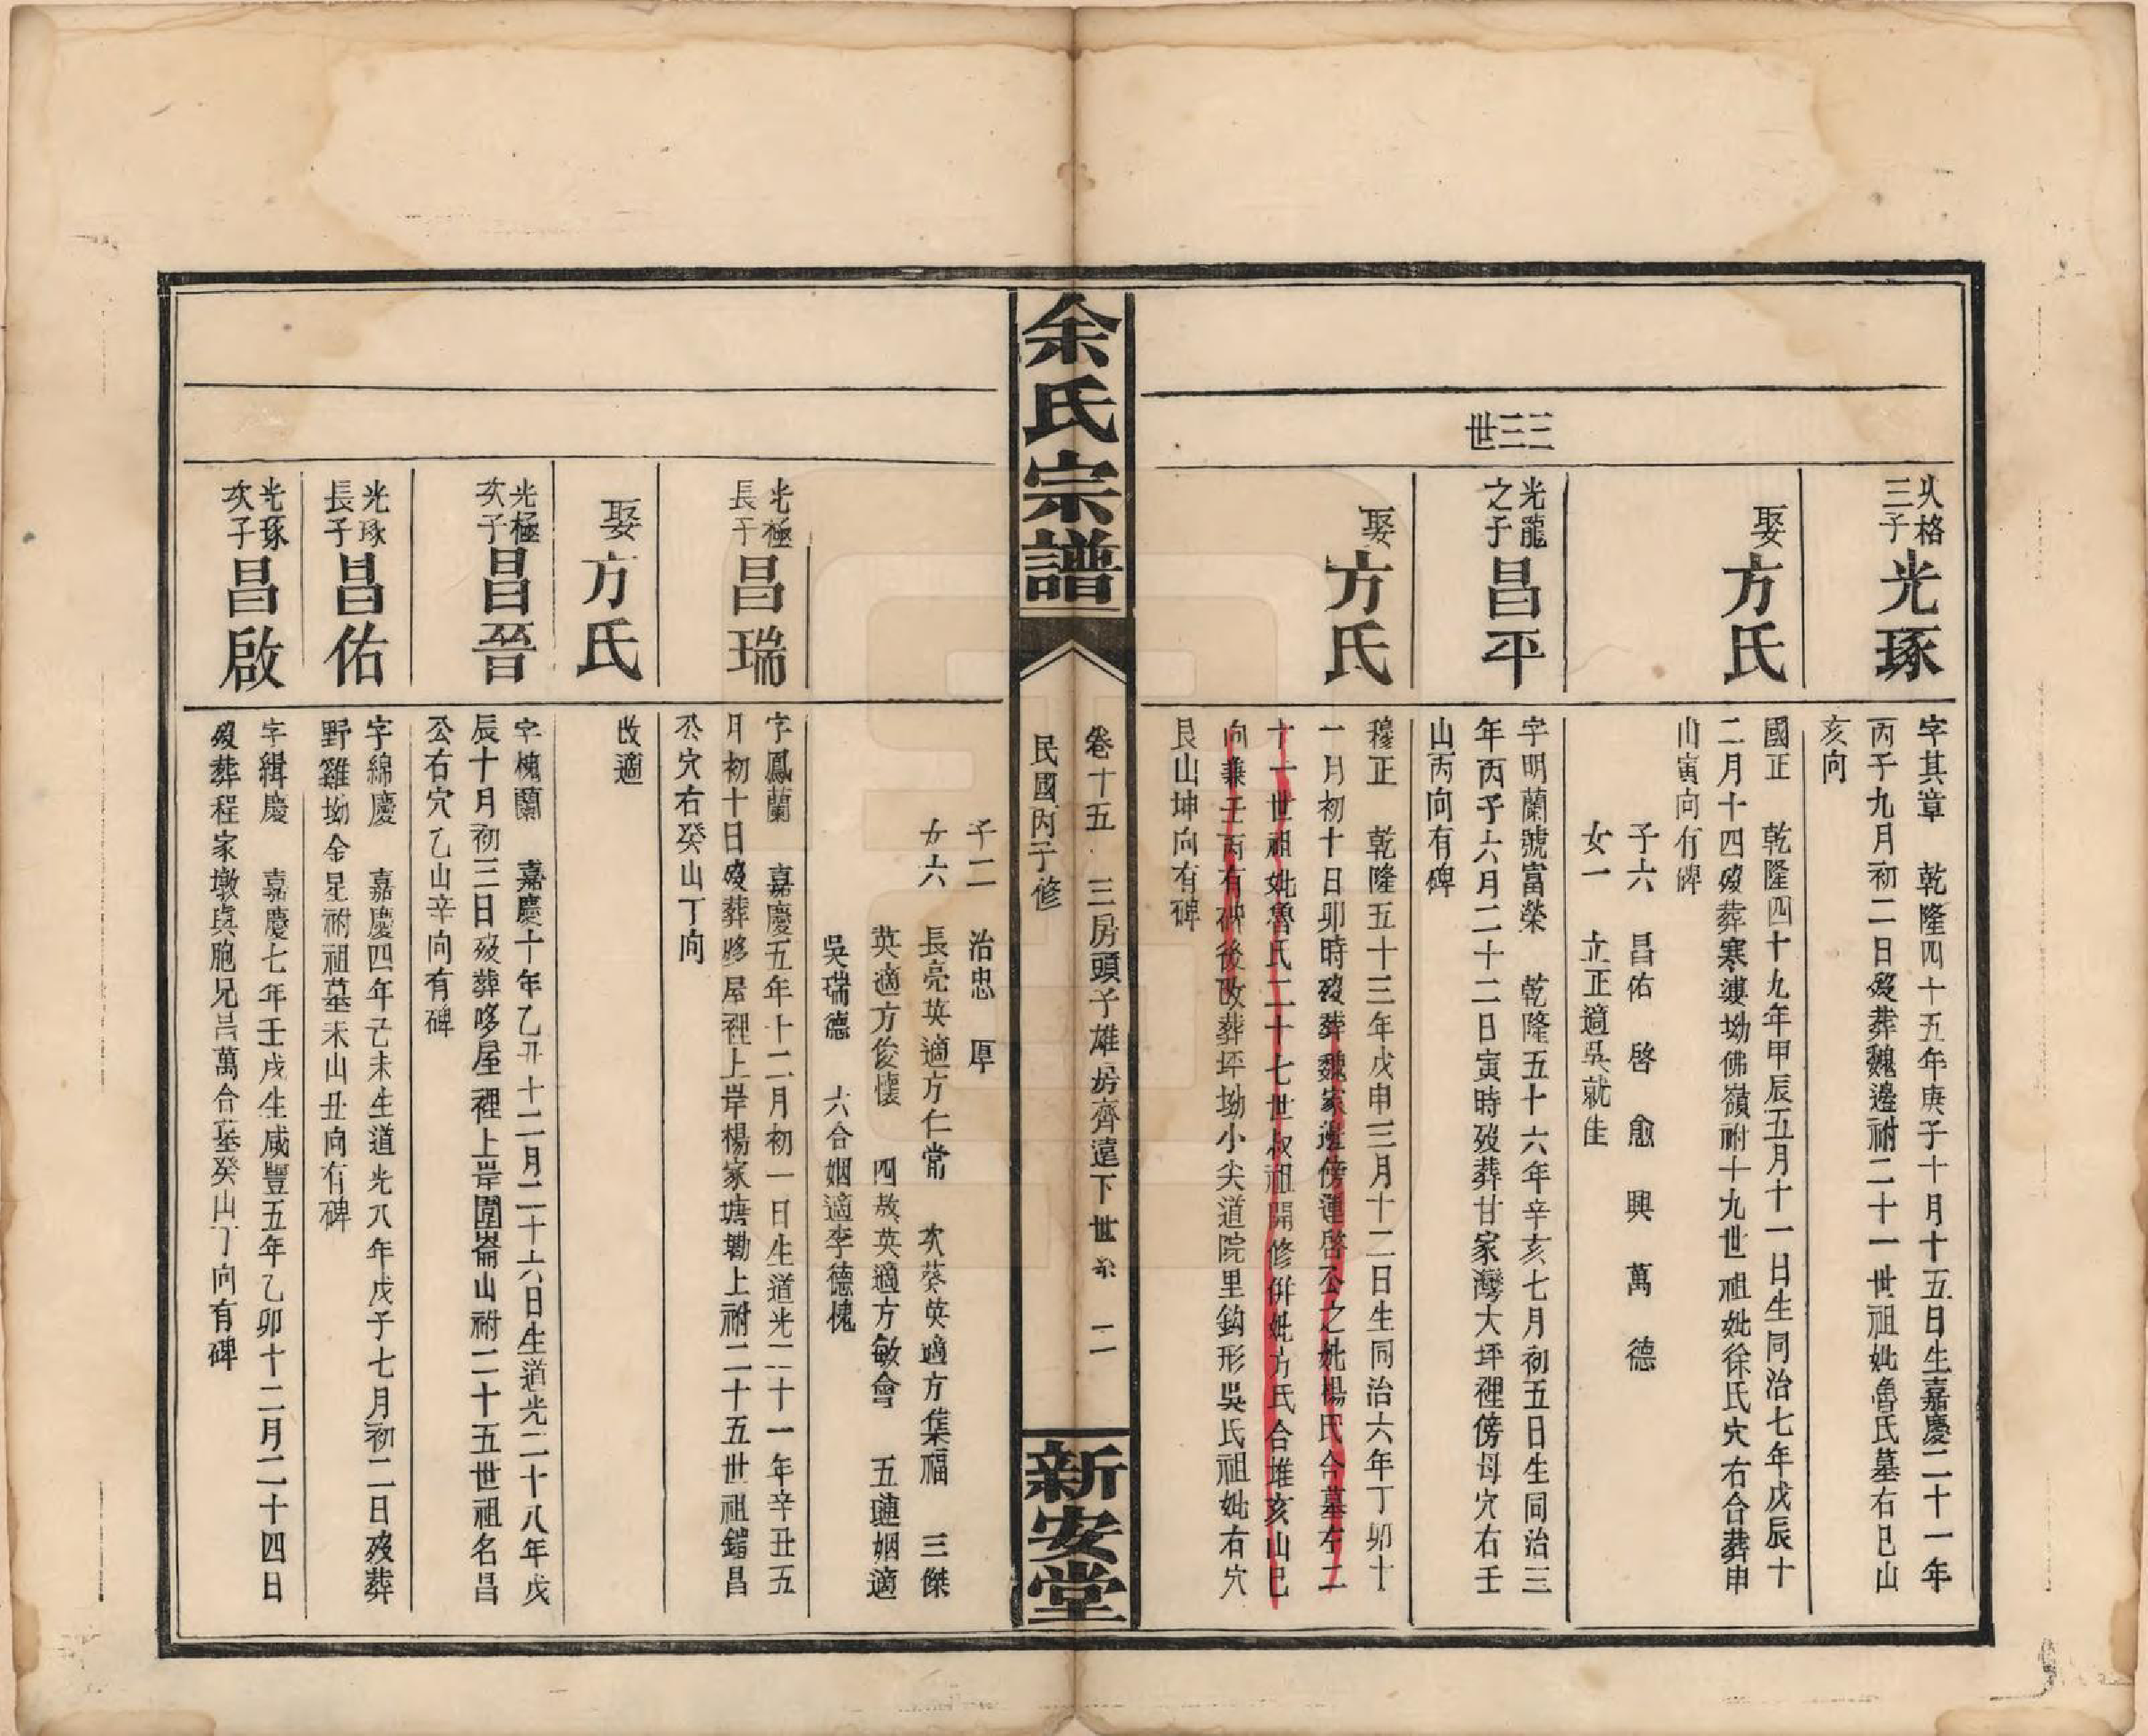 三三世
火格三子
光琢
字其章　乾隆四十五年庚子十月十五日生嘉慶二十一年
丙子九月初二日歿葬魏邊祔二十一世祖妣魯氏墓右巳山
亥向
娶
方氏
國正　乾隆四十九年甲辰五月十一日生同治七年戊辰十
二月十四歿葬寒婆坳佛嶺祔十九世祖妣徐氏穴右合葬申
山寅向有碑
子六　昌佑　啓　愈　興　萬　德
女一　立正適吳就佳
光龍之子
昌平
字明蘭號富榮　乾隆五十六年辛亥七月初五日生同治三
年丙子六月二十二日寅時歿葬甘家灣大坪裡傍母穴右壬
山丙向有碑
娶
方氏
穆正　乾隆五十三年戊申三月十二日生同治六年丁卯十
一月初十日卯時歿葬魏家邊傍運啓公之妣楊氏合墓左二
十一世祖妣魯氏二十七世叔祖開修併妣方氏合堆亥山巳
向兼壬丙有碑後改葬坪坳小尖道院里鈎形吳氏祖妣右穴
艮山坤向有碑
余氏宗譜
卷十五　三房頭子雄房齊遠下世系　二
民國丙子修
新安堂
子二　治忠　厚
女六　長亮英適方仁常　次葵英適方集福　三傑
英適方俊懷　四敖英適方敏會　五璉姻適
吳瑞德　六合姻適李德槐
光極長子
昌瑞
字鳳蘭　嘉慶五年十二月初一日生道光二十一年辛丑五
月初十日歿葬㢋屋裡上岸楊家塘墈上祔二十五世祖鍇昌
公穴右癸山丁向
娶
方氏
改適
光極次子
昌晉
字槐蘭　嘉慶十年乙丑十二月二十六日生道光二十八年戊
辰十月初三日歿葬㢋屋裡上岸圍崙山祔二十五世祖名昌
公右穴乙山辛向有碑
光琢長子
昌佑
字綿慶　嘉慶四年己未生道光八年戊子七月初二日歿葬
野雞坳金星祔祖墓未山丑向有碑
光琢次子
昌啟
字緝慶　嘉慶七年壬戌生咸豐五年乙卯十二月二十四日
歿葬程家墩與胞兄昌萬合墓癸山丁向有碑